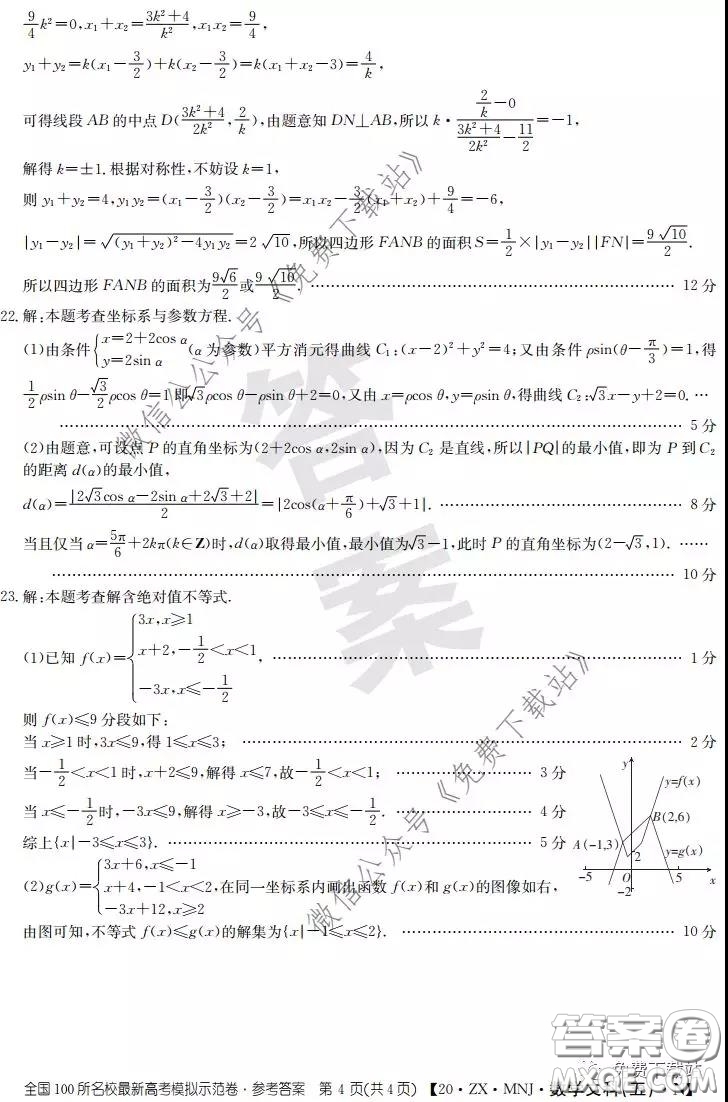 9/4 k²=0,x₁+x₂=(3k²+4)/k²,x₁x₂=9/4,
y₁+y₂=k(x₁-3/2)+k(x₂-3/2)=k(x₁+x₂-3)=4/k,
可得线段 AB 的中点 D((3k²+4)/2k²,2/k),由题意知 DN⊥AB,所以 k·(2/k-0)/((3k²+4)/2k²-11/2)=-1,
解得 k=±1.根据对称性,不妨设 k=1,
则 y₁+y₂=4,y₁y₂=(x₁-3/2)(x₂-3/2)=x₁x₂-3/2(x₁+x₂)+9/4=-6,
|y₁-y₂|=√((y₁+y₂)²-4y₁y₂)=2√10,所以四边形 FANB 的面积 S=1/2×|y₁-y₂||FN|=9√10/2.
所以四边形 FANB 的面积为9√6/2或9√10/2. …… 12 分
22.解:本题考查坐标系与参数方程.
(1)由条件{x=2+2cos α y=2sin α(α 为参数)平方消元得曲线 C₁:(x-2)²+y²=4;又由条件 ρsin(θ-π/3)=1,得
1/2ρsin θ-√3/2ρcos θ=1 即√3ρcos θ-ρsin θ+2=0,又由 x=ρcos θ,y=ρsin θ,得曲线 C₂:√3x-y+2=0. …
…… 5 分
(2)由题意,可设点 P 的直角坐标为(2+2cos α,2sin α),因为 C₂ 是直线,所以|PQ|的最小值,即为 P 到 C₂
的距离 d(α)的最小值,
d(α)=|2√3cos α-2sin α+2√3+2|/2=|2cos(α+π/6)+√3+1|. …… 8 分
当且仅当 α=5π/6+2kπ(k∈Z)时,d(α)取得最小值,最小值为√3-1,此时 P 的直角坐标为(2-√3,1). ……
…… 10 分
23.解:本题考查解含绝对值不等式.
(1)已知 f(x)={3x,x≥1
x+2,-1/2<x<1, …… 1 分
-3x,x≤-1/2
则 f(x)≤9 分段如下:
当 x≥1 时,3x≤9,得 1≤x≤3; …… 2 分
当-1/2<x<1 时,x+2≤9,解得 x≤7,故-1/2<x<1; …… 3 分
当 x≤-1/2时,-3x≤9,解得 x≥-3,故-3≤x≤-1/2. …… 4 分
综上{x|-3≤x≤3}. …… 5 分
(2)g(x)={3x+6,x≤-1
x+4,-1<x<2,在同一坐标系内画出函数 f(x)和 g(x)的图像如右,
-3x+12,x≥2
由图可知,不等式 f(x)≤g(x)的解集为{x|-1≤x≤2}. …… 10 分
y
y=f(x)
B(2,6)
A(-1,3)
y=g(x)
2
-5 O 5 x
-2
全国 100 所名校最新高考模拟示范卷·参考答案 第 4 页(共 4 页) 【20·ZX·MNJ·数学文科(五) N】
微信公众号《免费下载站》
答案
微信公众号《免费下载站》
答案卷
免费下载站